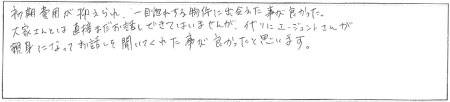 初期費用が抑えられ、一目惚れする物件に出会えた事が良かった。
大家さんとは直接まだお話しできてはいませんが、代りにエージェントさんが
親身になってお話しを聞いてくれた事が良かったと思います。